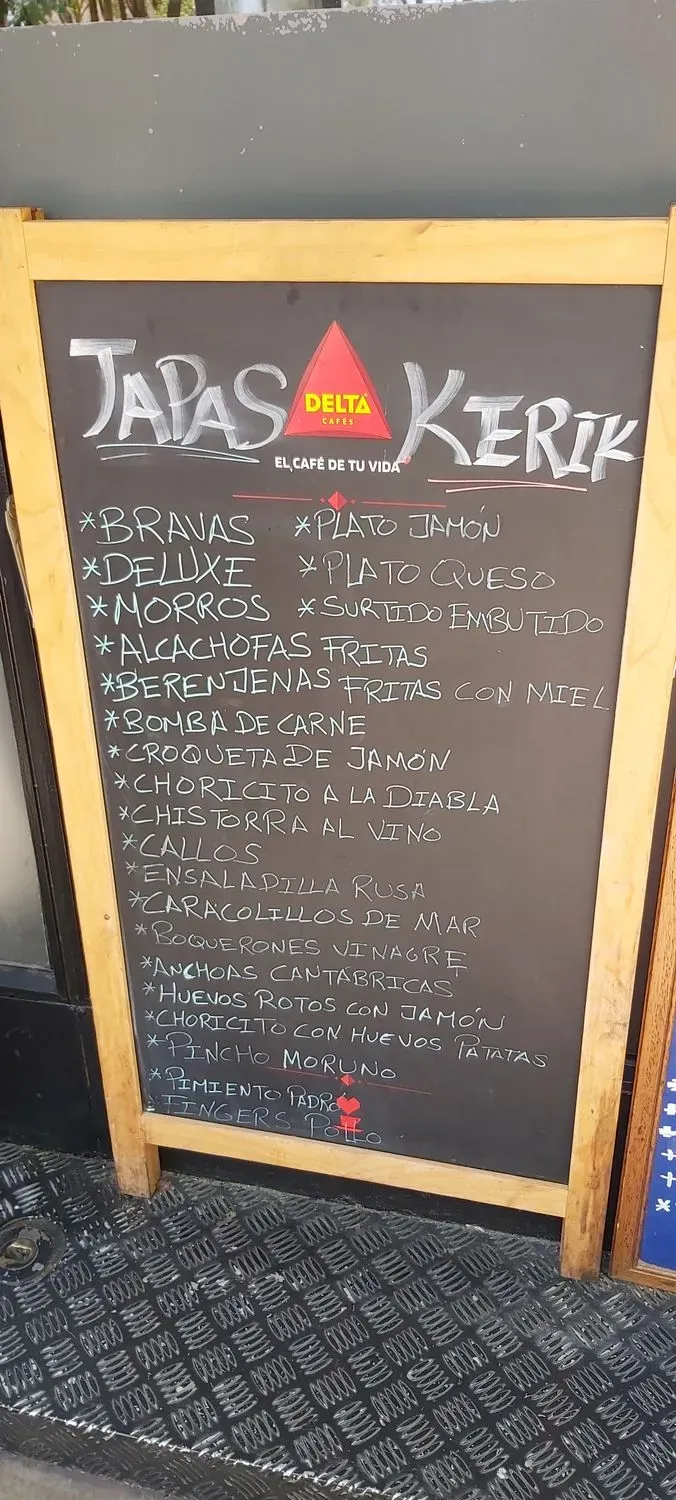 TAPAS KERIK
DELTA
CAFÉS
EL CAFÉ DE TU VIDA
*BRAVAS *PLATO JAMÓN
*DELUXE *PLATO QUESO
*MORROS *SURTIDO EMBUTIDO
*ALCACHOFAS FRITAS
*BERENJENAS FRITAS CON MIEL
*BOMBA DE CARNE
*CROQUETA DE JAMÓN
*CHORICITO A LA DIABLA
*CHISTORRA AL VINO
*CALLOS
*ENSALADILLA RUSA
*CARACOLILLOS DE MAR
*BOQUERONES VINAGRE
*ANCHOAS CANTABRICAS
*HUEVOS ROTOS CON JAMÓN
*CHORICITO CON HUEVOS PATATAS
*PINCHO MORUNO
*PIMIENTO PADRO
*FINGERS POLLO